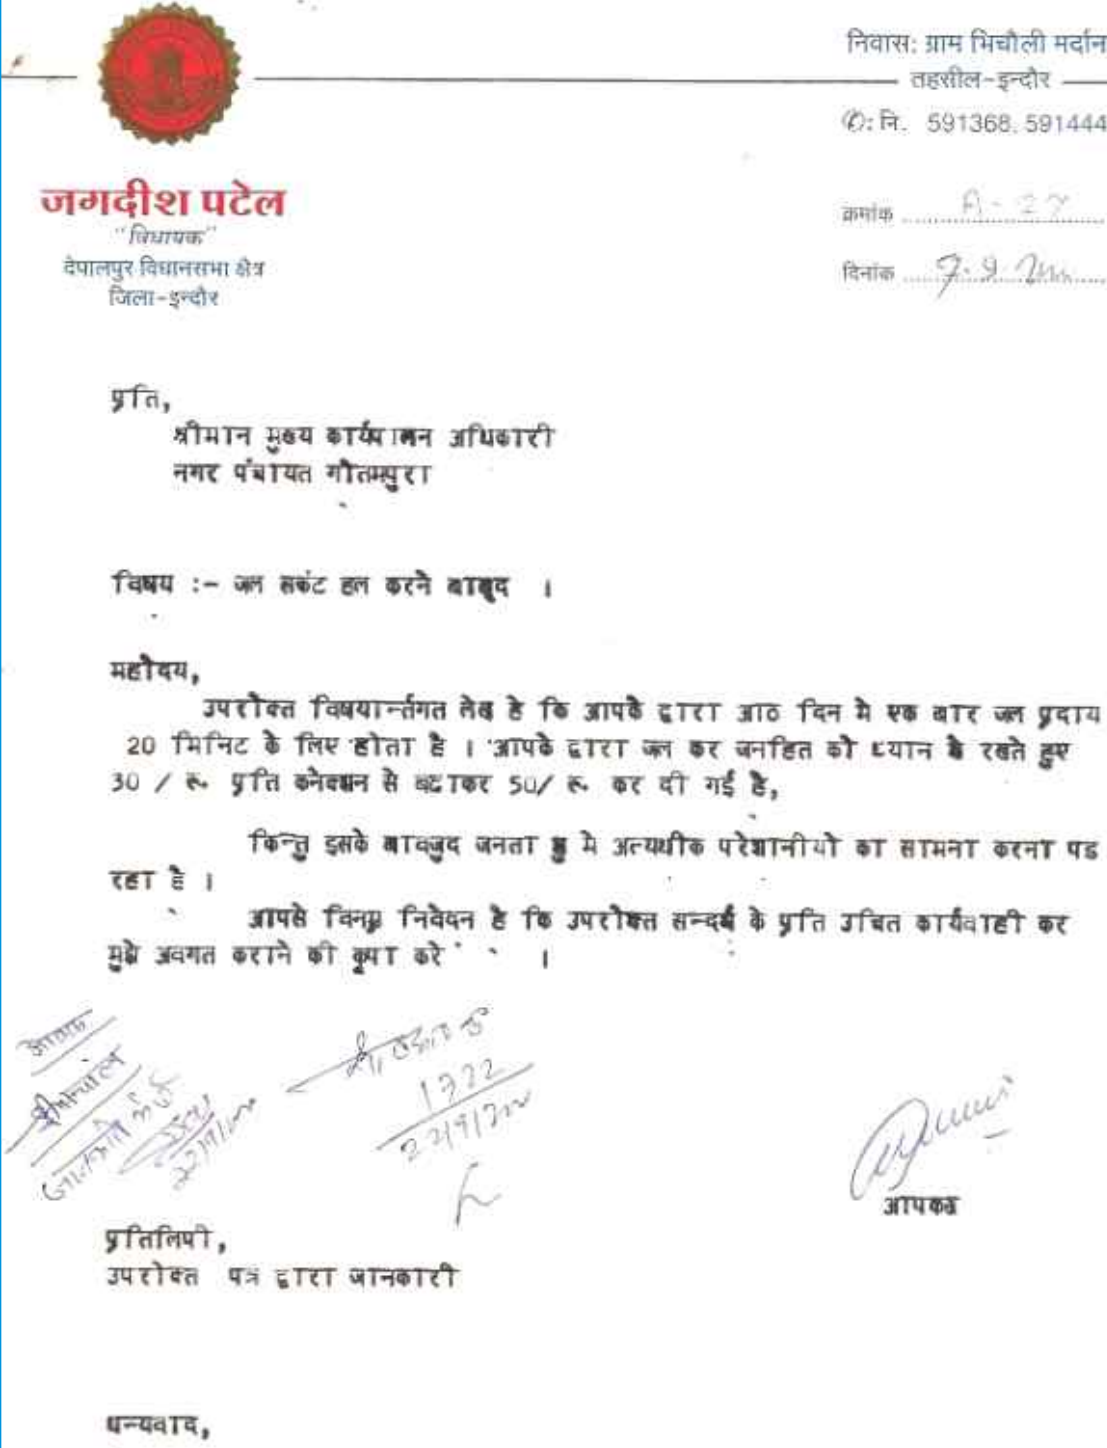 निवास: ग्राम भिचौली मर्दान
तहसील-इन्दौर
✆: नि. 591368, 591444
जगदीश पटेल
"विधायक"
देपालपुर विधानसभा क्षेत्र
जिला-इन्दौर
क्रमांक A-27
दिनांक 7.9.
प्रति,
श्रीमान मुख्य कार्यपालन अधिकारी
नगर पंचायत गौतमपुरा
विषय :- जल सकंट हल करने बाबुद ।
महोदय,
उपरोक्त विषयार्न्तगत लेख है कि आपके द्वारा आठ दिन मे एक बार जल प्रदाय
20 मिनिट के लिए होता है । आपके द्वारा जल कर जनहित को ध्यान के रखते हुए
30 / रू. प्रति कनेक्शन से बढाकर 50/ रू. कर दी गई है,
किन्तु इसके बावजुद जनता मे अत्यधीक परेशानीयो का सामना करना पड
रहा है ।
आपसे विनम्र निवेदन है कि उपरोक्त सन्दर्भ के प्रति उचित कार्यवाही कर
मुझे अवगत कराने की कृपा करे ।
आवक
1322
22/9/
22/9/200
आपका
प्रतिलिपी,
उपरोक्त पत्र द्वारा जानकारी
धन्यवाद,